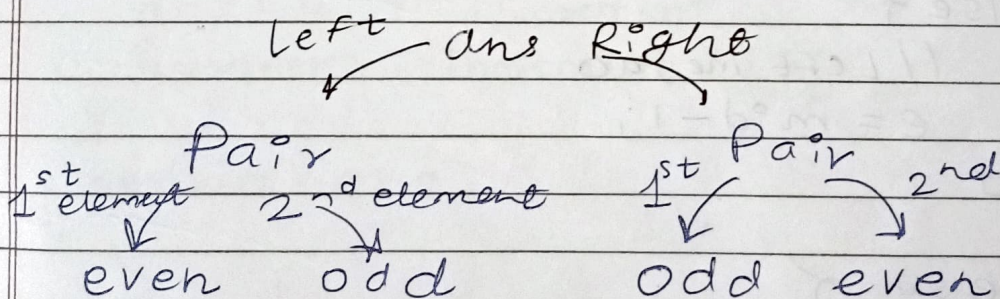 left ans Right
Pair Pair
1st element 2nd element 1st 2nd
even odd odd even